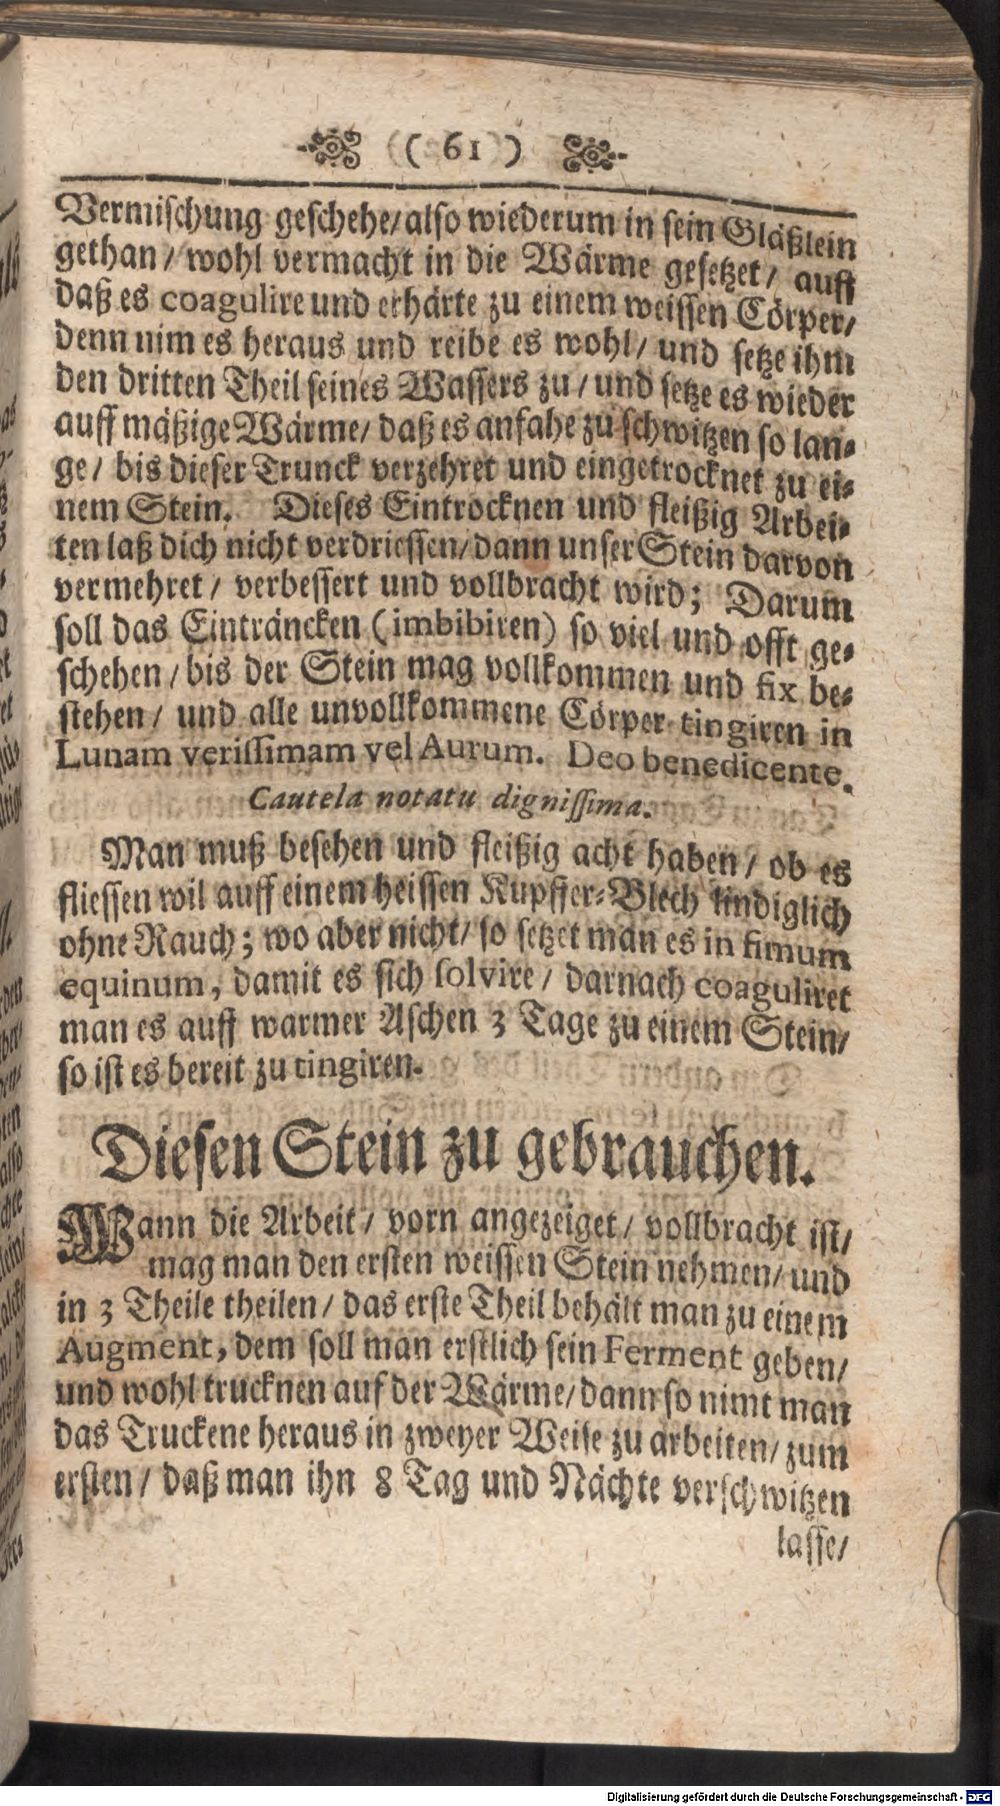 ( 61 )
Vermischung geschehe/also wiederum in sein Gläßlein
gethan/ wohl vermacht in die Wärme gesetzet/ auff
daß es coagulire und erhärte zu einem weissen Cörper/
denn nim es heraus und reibe es wohl/ und setze ihm
den dritten Theil seines Wassers zu/ und setze es wieder
auff mäßige Wärme/ daß es anfahe zu schwitzen so lan-
ge/ bis dieser Trunck verzehret und eingetrocknet zu ei-
nem Stein. Dieses Eintrocknen und fleißig Arbei-
ten laß dich nicht verdriessen/dann unser Stein darvon
vermehret/ verbessert und vollbracht wird; Darum
soll das Einträncken (imbibiren) so viel und offt ge-
schehen/bis der Stein mag vollkommen und fix be-
stehen/ und alle unvollkommene Cörper tingiren in
Lunam verissimam vel Aurum. Deo benedicente.
Cautela notatu dignissima.
Man muß besehen und fleißig acht haben/ ob es
fliessen wil auff einem heissen Kupffer-Blech lindiglich
ohne Rauch; wo aber nicht/ so setzet man es in fimum
equinum, damit es sich solvire/ darnach coaguliret
man es auff warmer Aschen 3 Tage zu einem Stein/
so ist es bereit zu tingiren.
Diesen Stein zu gebrauchen.
Wann die Arbeit/ vorn angezeiget/ vollbracht ist/
mag man den ersten weissen Stein nehmen/ und
in 3 Theile theilen/ das erste Theil behält man zu einem
Augment, dem soll man erstlich sein Ferment geben/
und wohl trucknen auf der Wärme/dann so nimt man
das Truckene heraus in zweyer Weise zu arbeiten/ zum
ersten/ daß man ihn 8 Tag und Nächte verschwitzen
lasse/
Digitalisierung gefördert durch die Deutsche Forschungsgemeinschaft - DFG